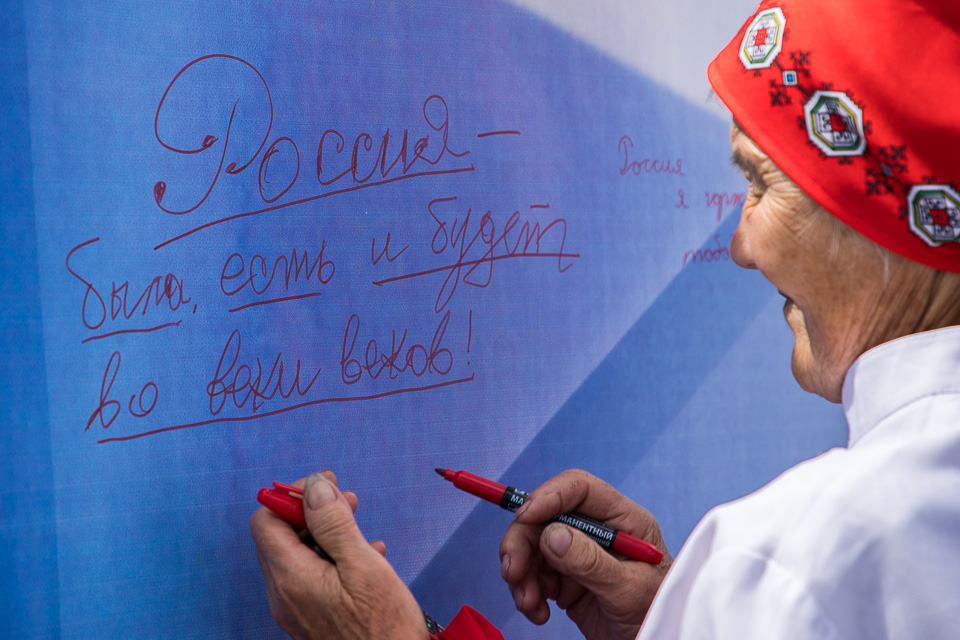 Россия -
была, есть и будет
во веки веков!
Россия
я
МАНЕНТНЫЙ